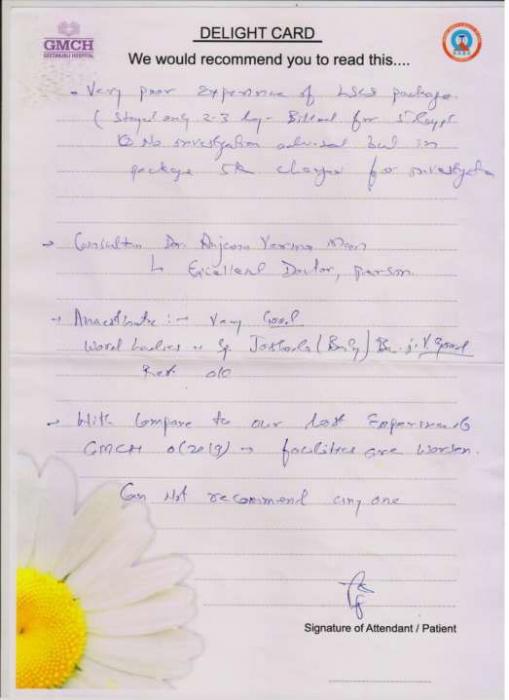 GMCH
GEETANJALI HOSPITAL
DELIGHT CARD
We would recommend you to read this....
Very poor Experience of LSCS package.
(Stayed only 2-3 day - Billed for 5 days
No investigation advised but in
package 5k charges for investigation
→ Consultan Dr. Anjana Verma
↳ Excellent Doctor, person.
→ : → Very Good
→ With Compare to our last Experience
GMCH (2019) → facilities are worsen.
Can Not recommend any one
Signature of Attendant / Patient